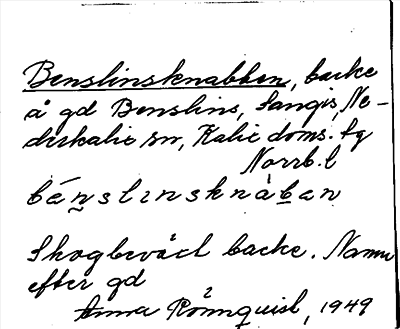 Benslinsknabben, backe
å gd Benslins, Sangis, Ne-
derkalix sn, Kalix doms. tg
Norrb. l
bénslinsknàban
Skogbeväxt backe. Namn
efter gd
Anna Rönnquist, 1949